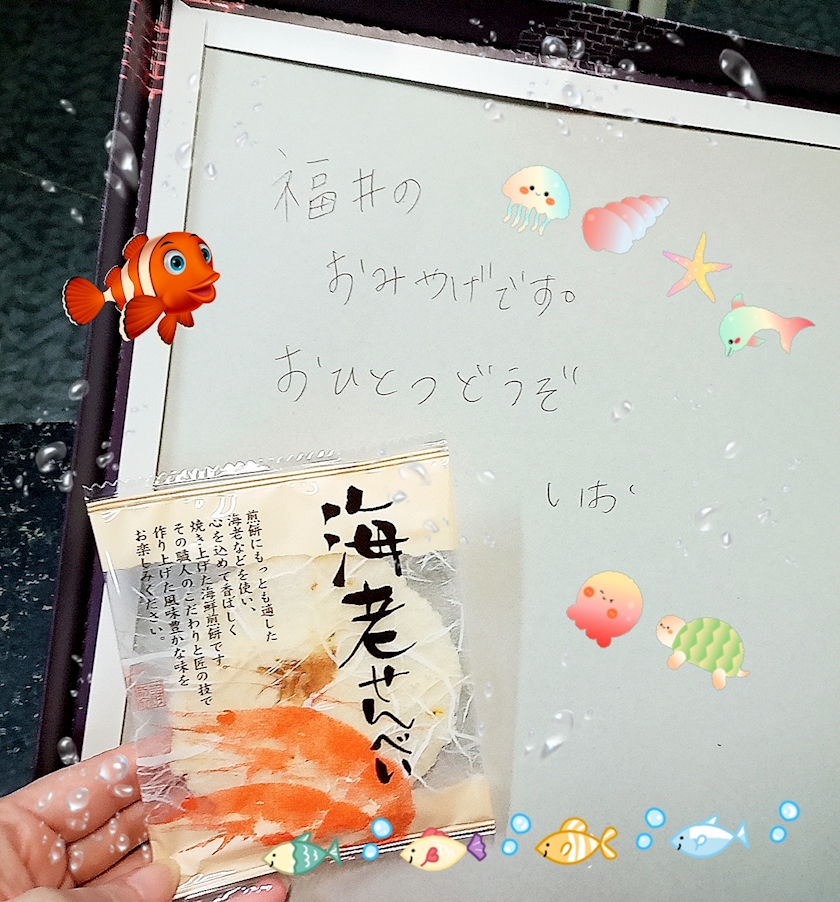 福井の
おみやげです。
おひとつどうぞ
海老せんべい
煎餅にもっとも適した
海老などを使い、
心を込めて香ばしく
焼き上げた海鮮煎餅です。
その職人のこだわりと匠の技で
作り上げた風味豊かな味を
お楽しみください。